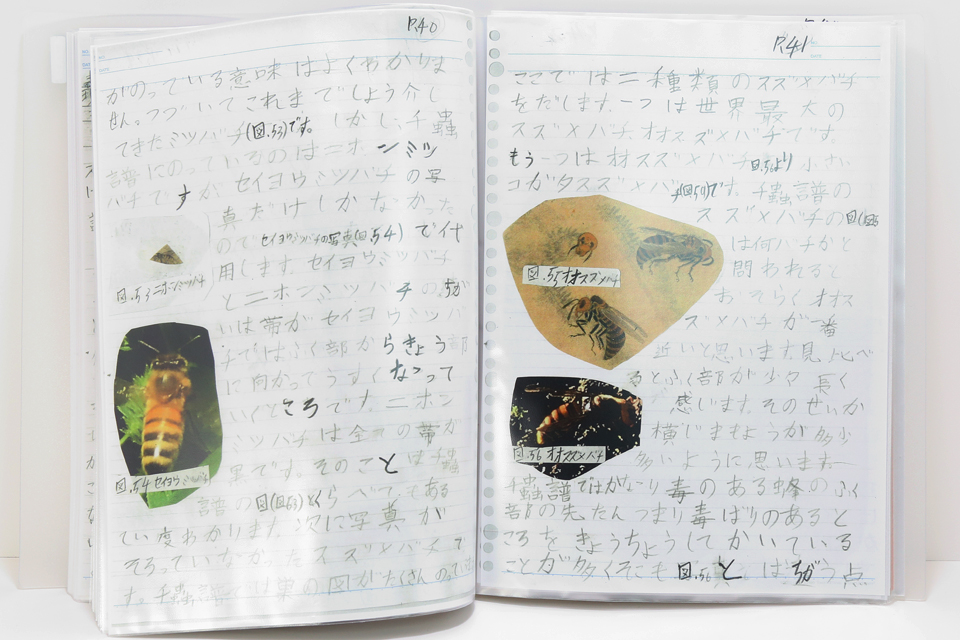 P.40
がのっている意味はよくわかりま
せん。つづいてこれまでしょう介し
てきたミツバチ(図.53)です。しかし、千蟲
譜にのっているのはニホンミツ
バチですが、セイヨウミツバチの写
真だけしかなかった
ので セイヨウミツバチの写真(図.54)で代
用します。セイヨウミツバチ
とニホンミツバチのちが
いは帯がセイヨウミツバ
チではふく部からきょう部
に向かってうすくなって
いくところです。ニホン
ミツバチは全ての帯が
黒です。そのことは千蟲
譜の図(図53)とくらべてもある
てい度わかります。次に写真が
そろっていなかったスズメバチで
す。千蟲譜には蜂の図がたくさんのって
図.53ニホンミツバチ
図.54セイヨウミツバチ
P.41
ここでは二種類のスズメバチ
をだします。一つは世界最大の
スズメバチオオスズメバチです。
もう一つはオオスズメバチ図.56より小さい
コガタスズメバチ です。千蟲譜の
スズメバチの図
は何バチかと
問われると
おそらくオオス
ズメバチが一番
近いと思います。見比べ
るとふく部が少々長く
感じます。そのせいか
横じまもようが多少
多いように思います。
千蟲譜ではかなり毒のある蜂のふく
部の先たんつまり毒ばりのあると
ころをきょうちょうしてかいている
ことが多くそこも図.56とはちがう点
図.55オオスズメバチ
図.56オオスズメバチ